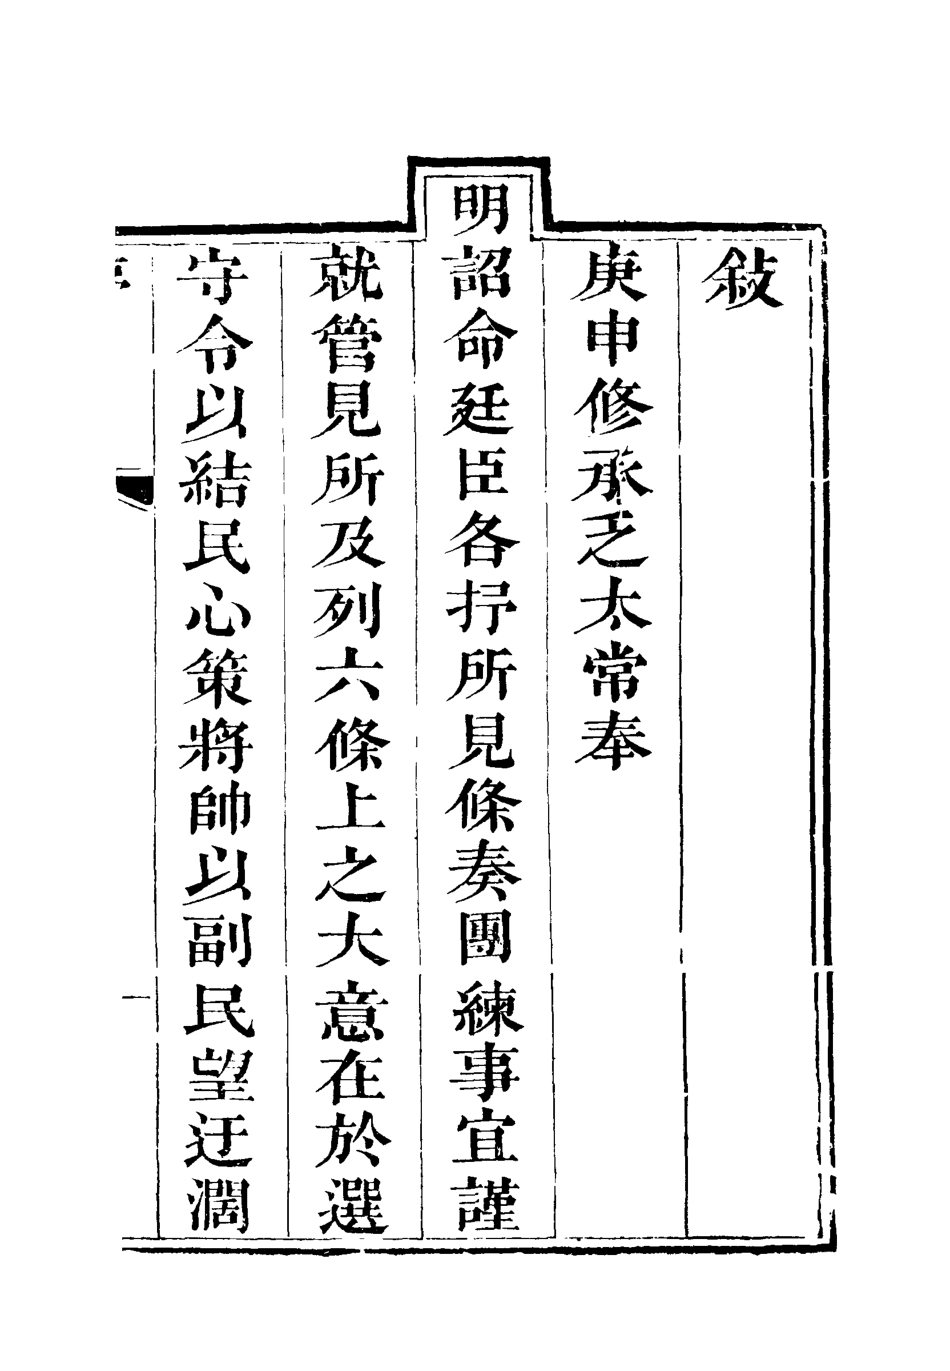 敍
庚申修承乏太常奉
明詔命廷臣各抒所見條奏團練事宜謹
就管見所及列六條上之大意在於選
守令以結民心策將帥以副民望迂濶